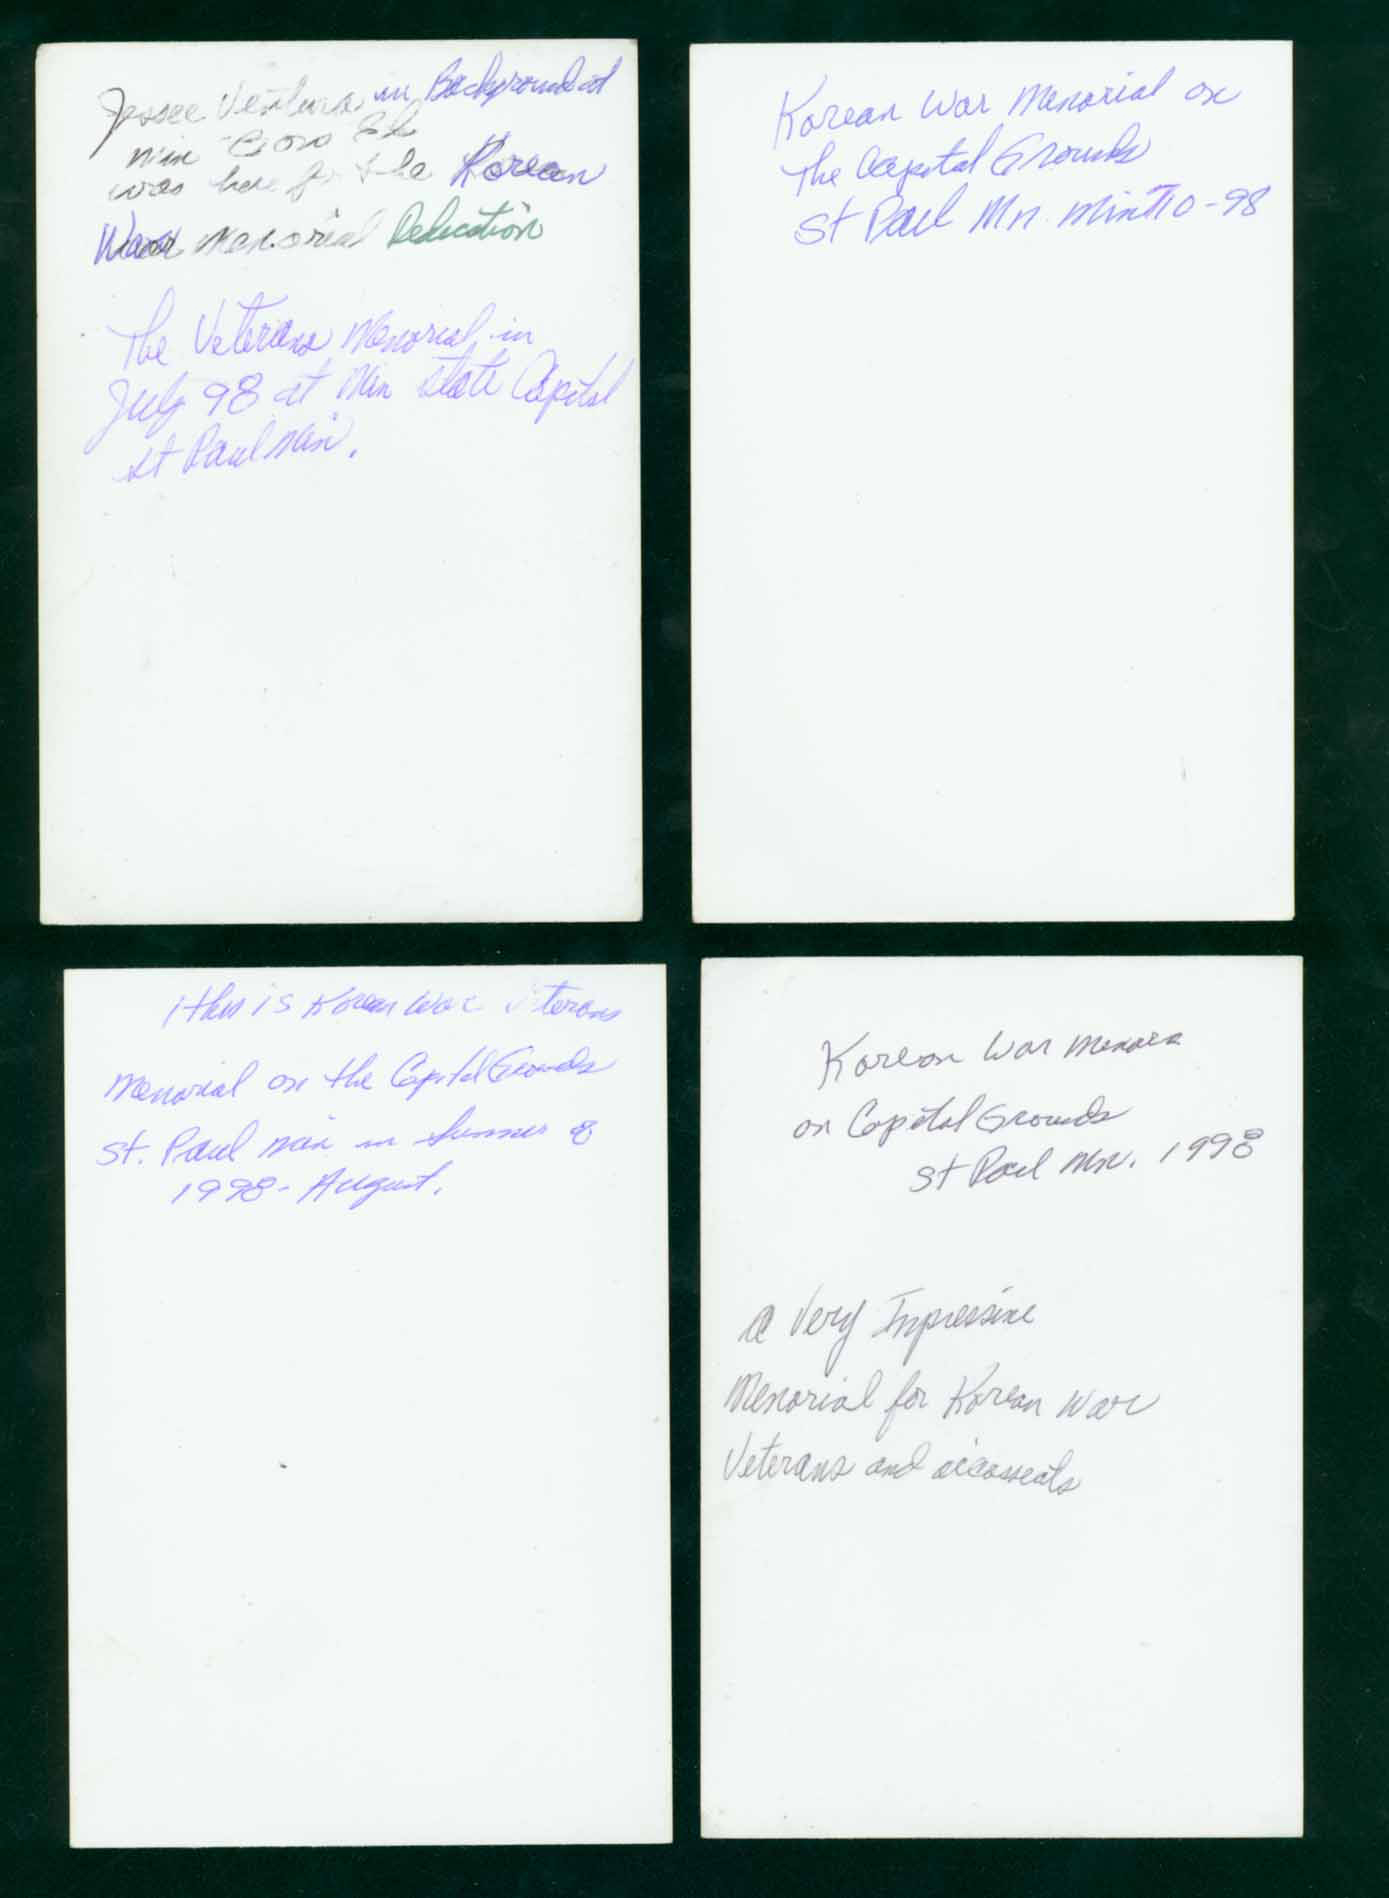 Jessee Ventura in Background at
Min
was here for the Korean
War Memorial Dedication
The Veterans Memorial in
July 98 at Min State Capital
St Paul Min.
Korean War Memorial on
The Capital Grounds
St Paul Mn. 10-98
This is Korean War Veterans
Memorial on the Capital Grounds
St. Paul Min in Summer of
1998 - August.
Korean War
on Capital Grounds
St Paul Mn. 1998
a Very Impressive
Memorial for Korean War
Veterans and